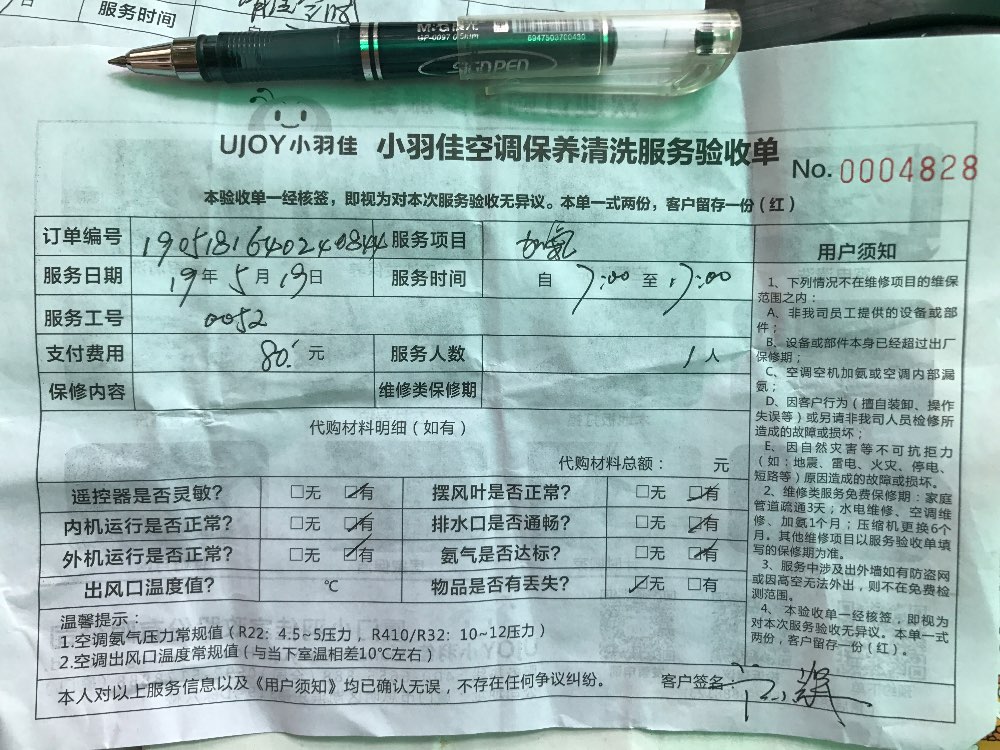 服务时间
M&G晨光
GP-0097 0.5MM
6947503700430
SIGN PEN
UJOY小羽佳 小羽佳空调保养清洗服务验收单
No. 0004828
本验收单一经核签，即视为对本次服务验收无异议。本单一式两份，客户留存一份（红）
订单编号 1905181640240844 服务项目 加氨
服务日期 19年5月19日 服务时间 自 7:00 至 17:00
服务工号 0052
支付费用 80. 元 服务人数 1人
保修内容 维修类保修期
代购材料明细（如有）
代购材料总额： 元
遥控器是否灵敏？ □无 ☑有 摆风叶是否正常？ □无 ☑有
内机运行是否正常？ □无 ☑有 排水口是否通畅？ □无 ☑有
外机运行是否正常？ □无 ☑有 氨气是否达标？ □无 ☑有
出风口温度值？ ℃ 物品是否有丢失？ ☑无 □有
温馨提示：
1.空调氨气压力常规值（R22：4.5~5压力，R410/R32：10~12压力）
2.空调出风口温度常规值（与当下室温相差10℃左右）
本人对以上服务信息以及《用户须知》均已确认无误，不存在任何争议纠纷。 客户签名：
用户须知
1、下列情况不在维修项目的维保
范围之内：
A、非我司员工提供的设备或部
件；
B、设备或部件本身已经超过出厂
保修期；
C、空调空机加氨或空调内部漏
氨；
D、因客户行为（擅自装卸、操作
失误等）或另请非我司人员检修所
造成的故障或损坏；
E、因自然灾害等不可抗拒力
（如：地震、雷电、火灾、停电、
短路等）原因造成的故障或损坏。
2、维修类服务免费保修期：家庭
管道疏通3天；水电维修、空调维
修、加氨1个月；压缩机更换6个
月。其他维修项目以服务验收单填
写的保修期为准。
3、服务中涉及出外墙如有防盗网
或因高空无法外出，则不在免费检
测范围。
4、本验收单一经核签，即视为
对本次服务验收无异议。本单一式
两份，客户留存一份（红）。